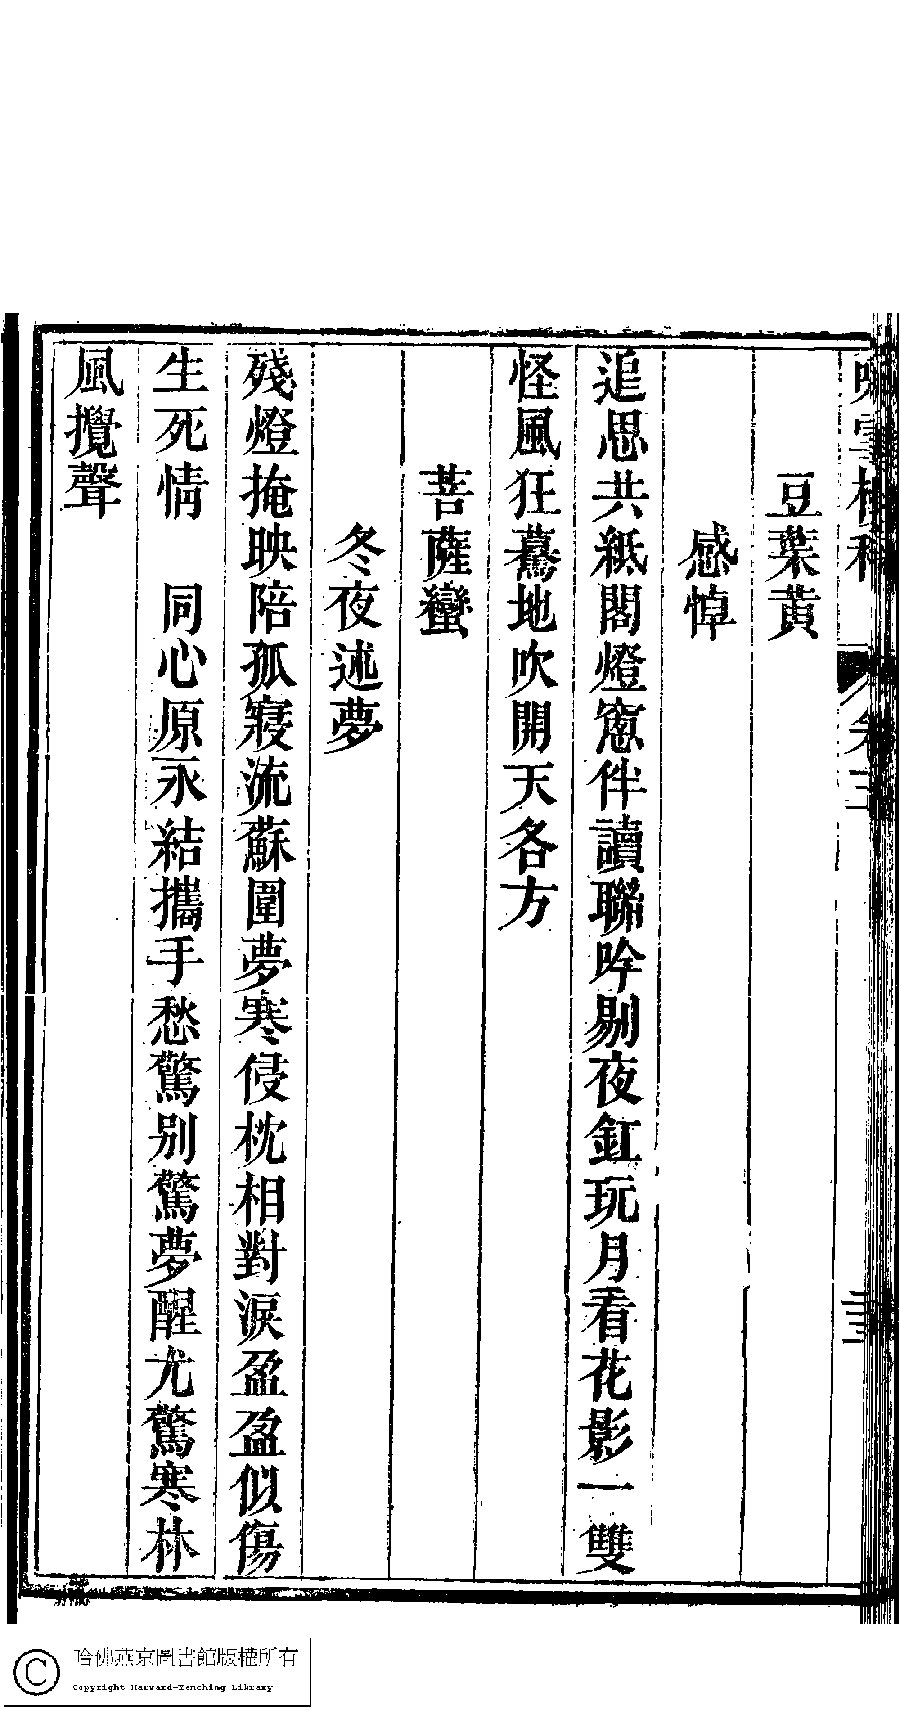 卷三
豆葉黃
感悼
追思共紙閣燈窻伴讀聯吟剔夜釭玩月看花影一雙
怪風狂驀地吹開天各方
菩薩蠻
冬夜述夢
殘燈掩映陪孤寢流蘇圍夢寒侵枕相對淚盈盈似傷
生死情　同心原永結攜手愁驚別驚夢醒尤驚寒林
風攪聲
哈佛燕京圖書館版權所有
Copyright Harvard-Yenching Library